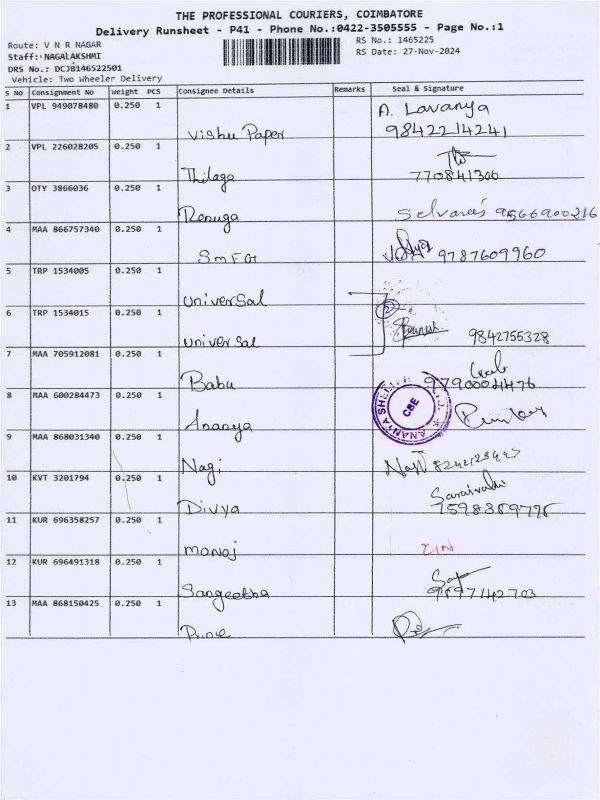 THE PROFESSIONAL COURIERS, COIMBATORE
Delivery Runsheet - P41 - Phone No.:0422-3505555 - Page No.:1
Route: V N R NAGAR
RS No.: 1465225
Staff: NAGALAKSHMI
RS Date: 27-Nov-2024
DRS No.: DCJB146522501
Vehicle: Two Wheeler Delivery
S No Consignment No Weight PCS Consignee Details Remarks Seal & Signature
1 VPL 949078480 0.250 1
A. Lavanya
Vishu Paper 9842214241
2 VPL 226028205 0.250 1
Thilaga 770841306
3 OTY 3866036 0.250 1
Renuga Selvaraj 9566900216
4 MAA 866757340 0.250 1
SMFG 9787609960
5 TRP 1534005 0.250 1
Universal
6 TRP 1534015 0.250 1
2
Universal 9842755328
7 MAA 705912081 0.250 1
Babu 9790004476
8 MAA 600284473 0.250 1
CBE
Ananya
9 MAA 868031340 0.250 1
Nagi
10 KVT 3201794 0.250 1
Divya
11 KUR 696358257 0.250 1
Manoj
12 KUR 696491318 0.250 1
Sangeetha
13 MAA 868150425 0.250 1